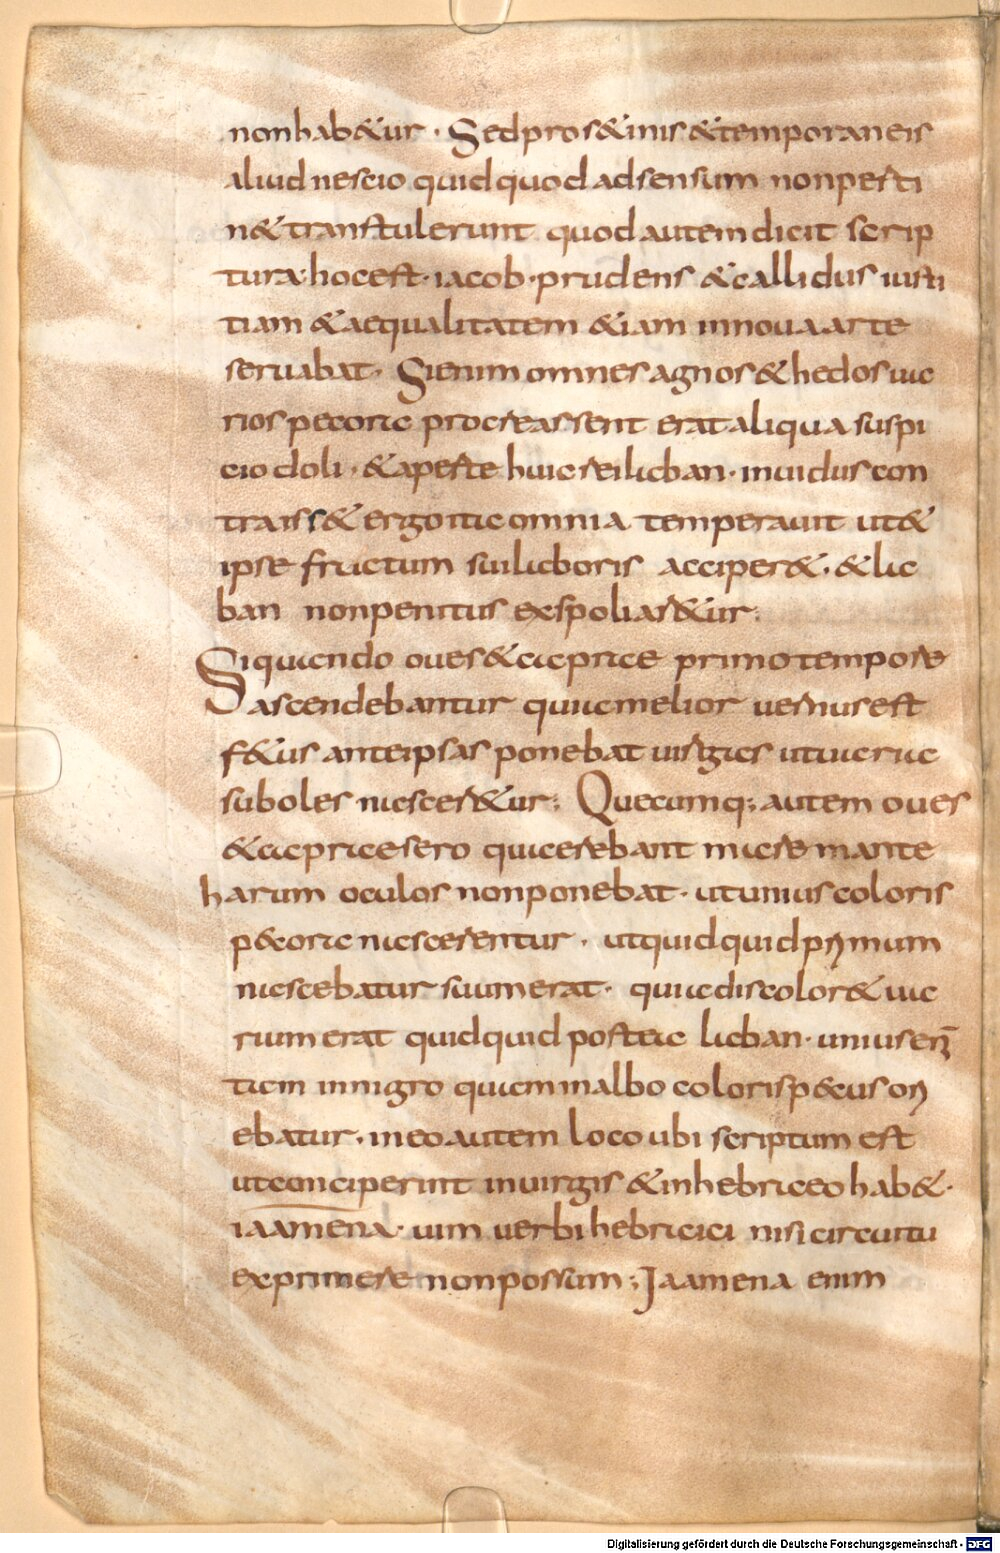 non hab&ur · Sed pro s&inis & temporaneis
aliud nescio quid quod ad sensum non perti
n& transtulerunt quod autem dicit scrip
tura· hoc est· iacob· prudens & callidus iusti
tiam & aequalitatem &iam in noua arte
seruabat· Si enim omnes agnos & hedos ua
rios pecora procreassent erat aliqua suspi
cio doli · & aperte huic rei laban· inuidus con
traiss& ergo ita omnia temperauit ut &
ipse fructum sui laboris acciper&· & la
ban non penitus exspoliar&ur·
Si quando oues & capræ primo tempore
ascendebantur quia melior uernus est
f&us ante ipsas ponebat uirgas ut uaria
suboles nascer&ur; Quecumq; autem oues
& capræ sero quaerebant mare mante
harum oculos non ponebat· ut unius coloris
p&ora nascerentur · ut quidquid primum
nascebatur suum erat· quia discolor & ua
rium erat quidquid postea laban· unius eni̅
tam in nigro quam in albo coloris p&us ori
ebatur· in eo autem loco ubi scriptum est
ut conciperint in uirgis & in hebræo hab&·
iaamena· uim uerbi hebraici nisi circuitu
exprimere non possum; Jaamena enim
Digitalisierung gefördert durch die Deutsche Forschungsgemeinschaft - DFG